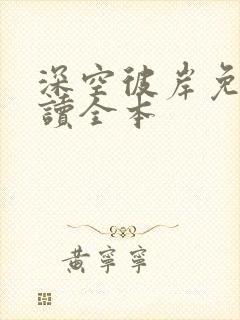 深空彼岸免
讀全本
黃寧寧